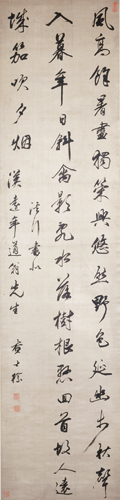 風高餘暑盡獨策興悠然野色延幽步秋聲
入暮年日斜禽影亂水落樹根懸回首故人遠
城笳吹夕烟
書似
年道翁先生
查士標